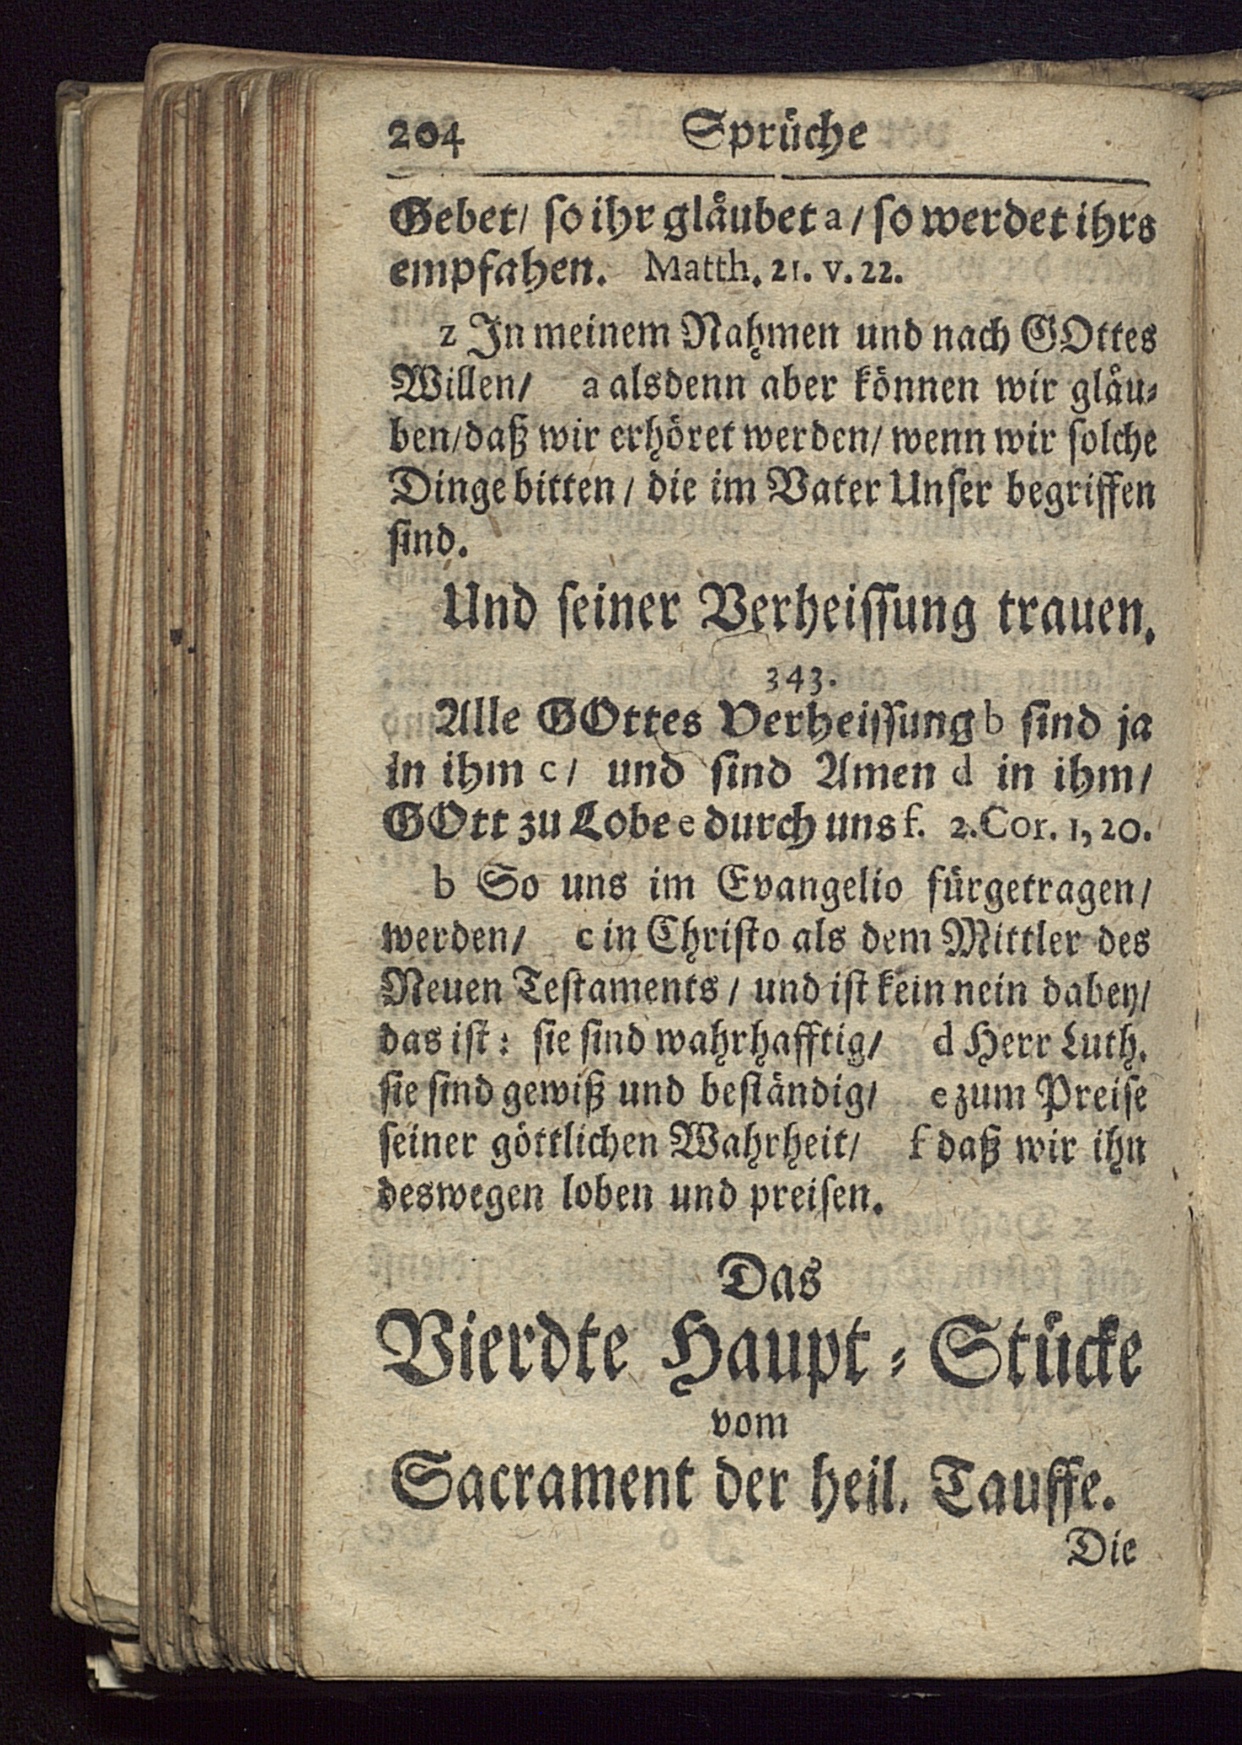 204 Sprüche
Gebet/ so ihr gläubet a / so werdet ihrs
empfahen. Matth. 21. v. 22.
z In meinem Nahmen und nach GOttes
Willen/ a alsdenn aber können wir gläu-
ben/daß wir erhöret werden/ wenn wir solche
Dinge bitten / die im Vater Unser begriffen
sind.
Und seiner Verheissung trauen.
343.
Alle GOttes Verheissung b sind ja
in ihm c / und sind Amen d in ihm/
GOtt zu Lobe e durch uns f. 2. Cor. 1, 20.
b So uns im Evangelio fürgetragen/
werden/ c in Christo als dem Mittler des
Neuen Testaments / und ist kein nein dabey/
das ist: sie sind wahrhafftig/ d Herr Luth.
sie sind gewiß und beständig/ e zum Preise
seiner göttlichen Wahrheit/ f daß wir ihn
deswegen loben und preisen.
Das
Vierdte Haupt-Stücke
vom
Sacrament der heil. Tauffe.
Die